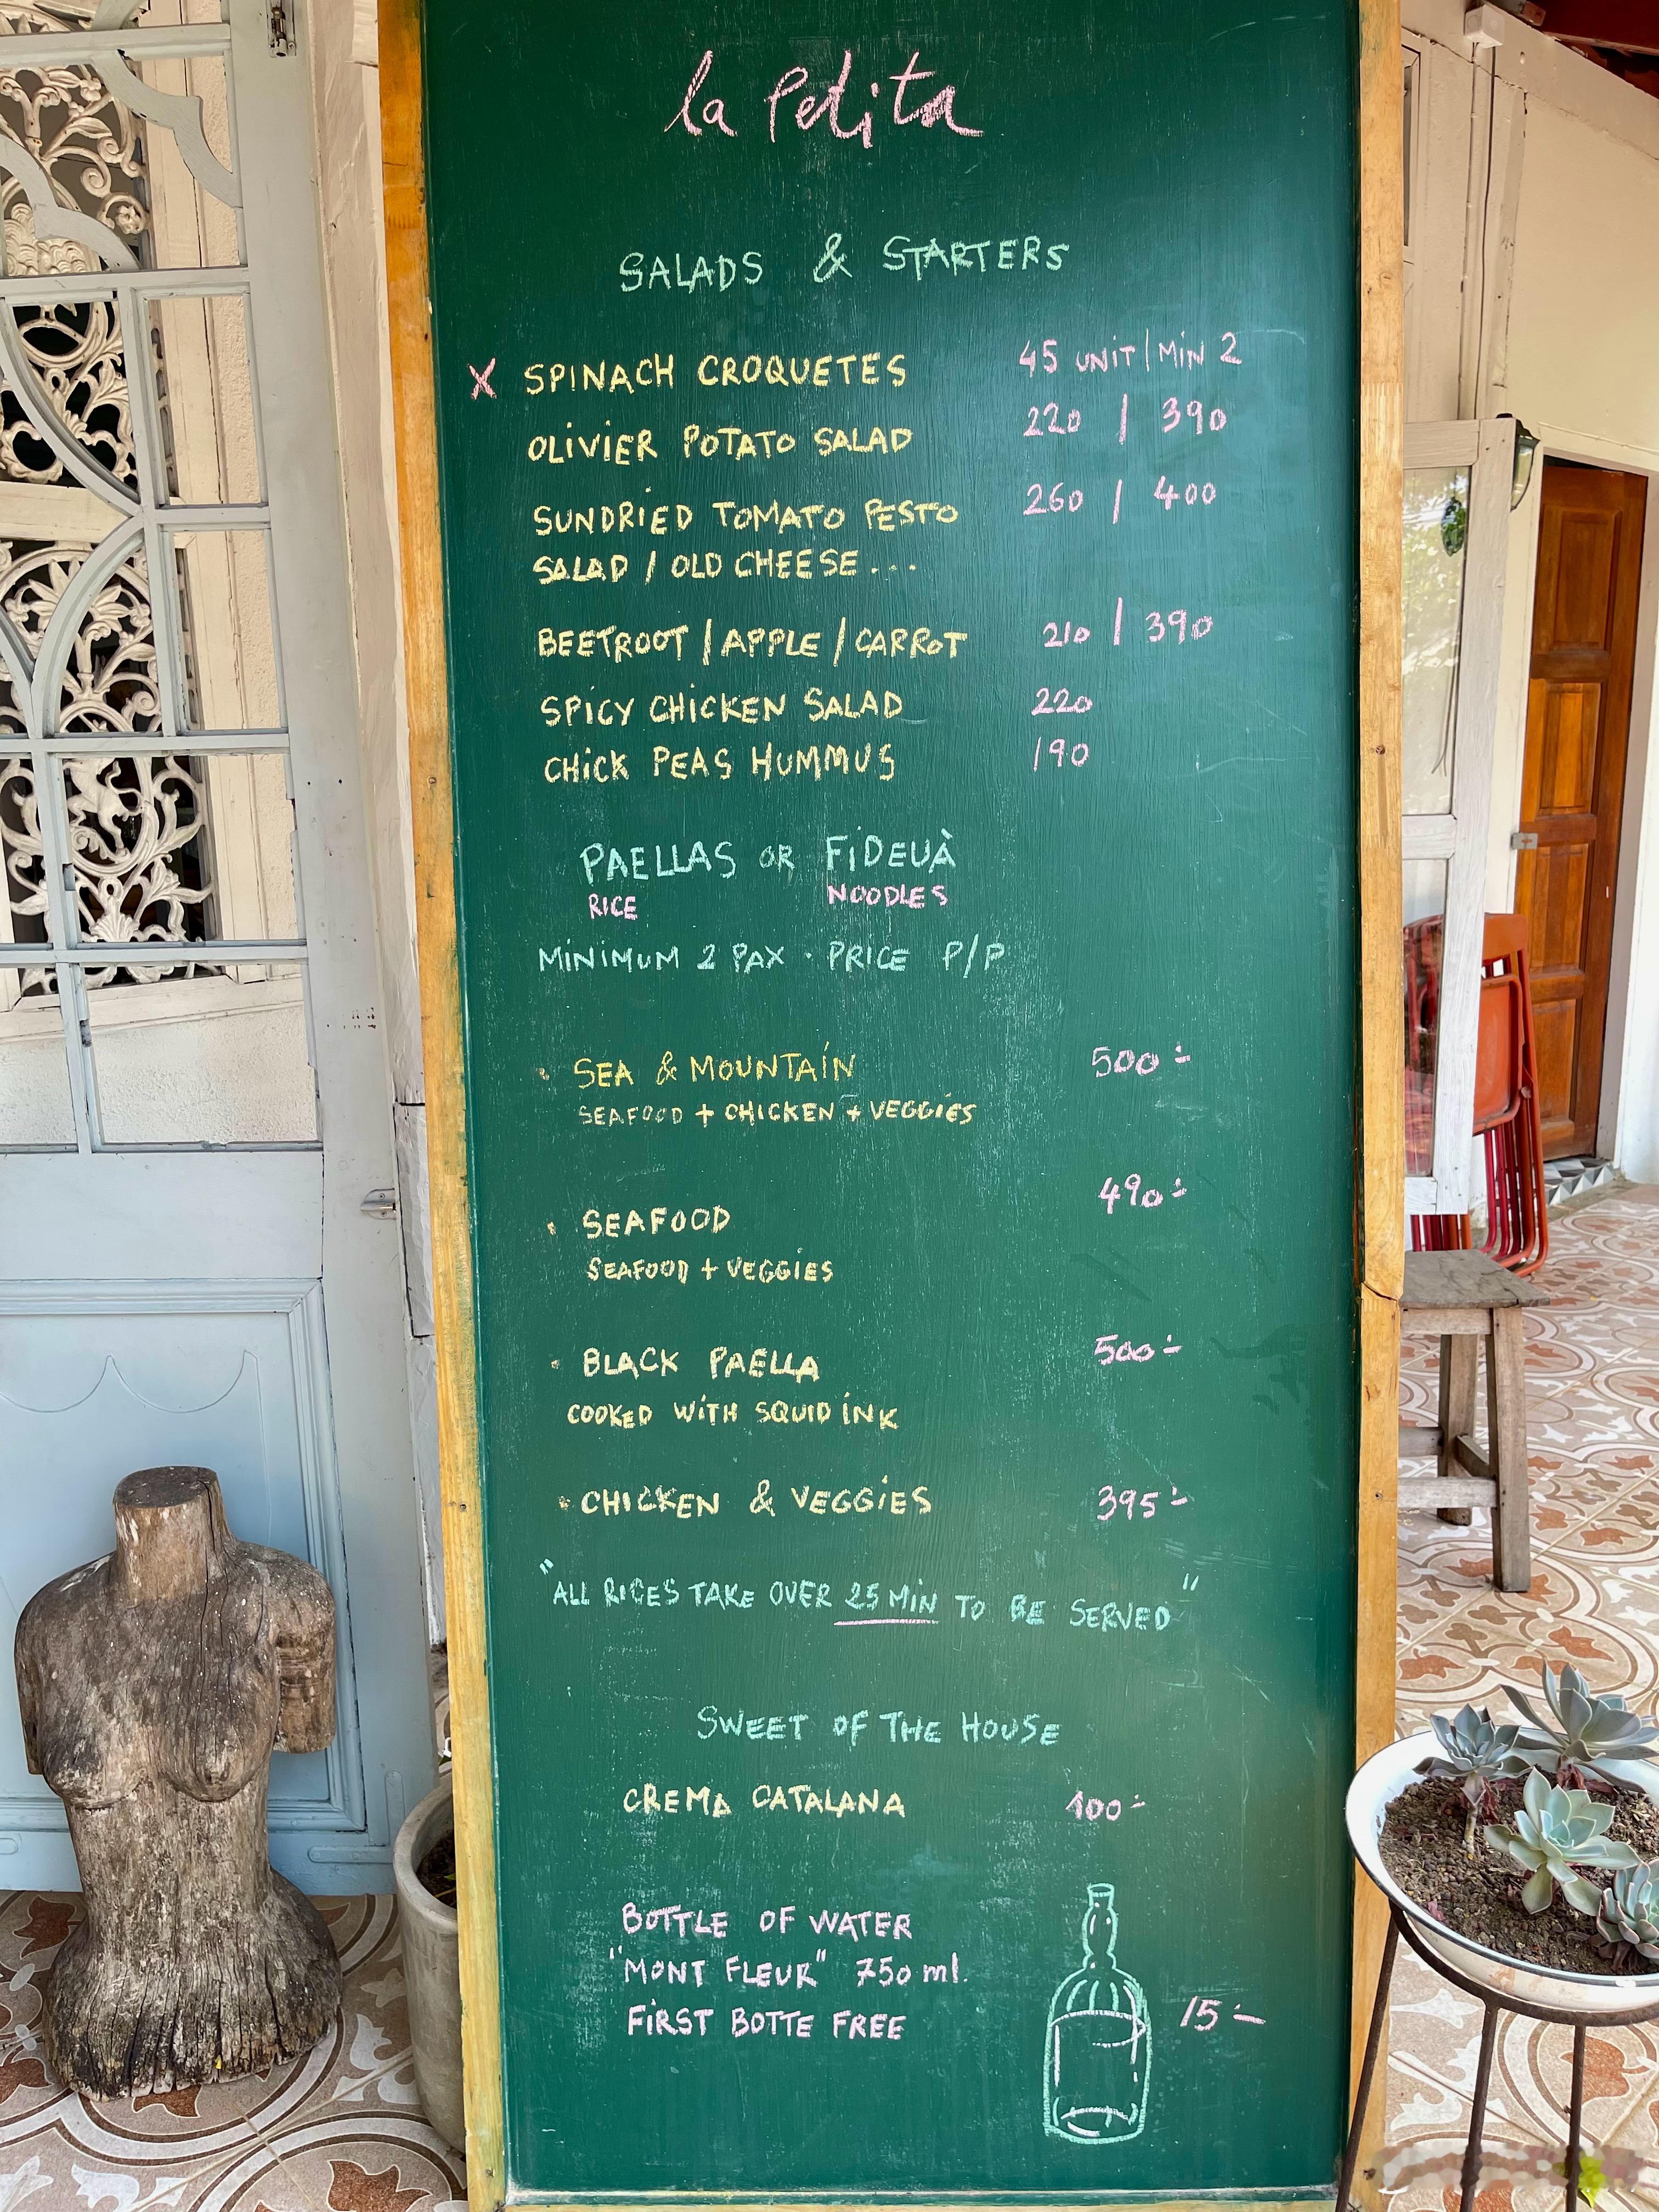 la Pedita
SALADS & STARTERS
X SPINACH CROQUETES 45 UNIT/MIN 2
OLIVIER POTATO SALAD 220 / 390
SUNDRIED TOMATO PESTO 260 / 400
SALAD / OLD CHEESE...
BEETROOT / APPLE / CARROT 210 / 390
SPICY CHICKEN SALAD 220
CHICK PEAS HUMMUS 190
PAELLAS OR FIDEUÀ
RICE NOODLES
MINIMUM 2 PAX · PRICE P/P
· SEA & MOUNTAIN 500.-
SEAFOOD + CHICKEN + VEGGIES
· SEAFOOD 490.-
SEAFOOD + VEGGIES
· BLACK PAELLA 500.-
COOKED WITH SQUID INK
· CHICKEN & VEGGIES 395.-
"ALL RICES TAKE OVER 25 MIN TO BE SERVED"
SWEET OF THE HOUSE
CREMA CATALANA 100.-
BOTTLE OF WATER
"MONT FLEUR" 750 ml.
FIRST BOTTE FREE 15.-